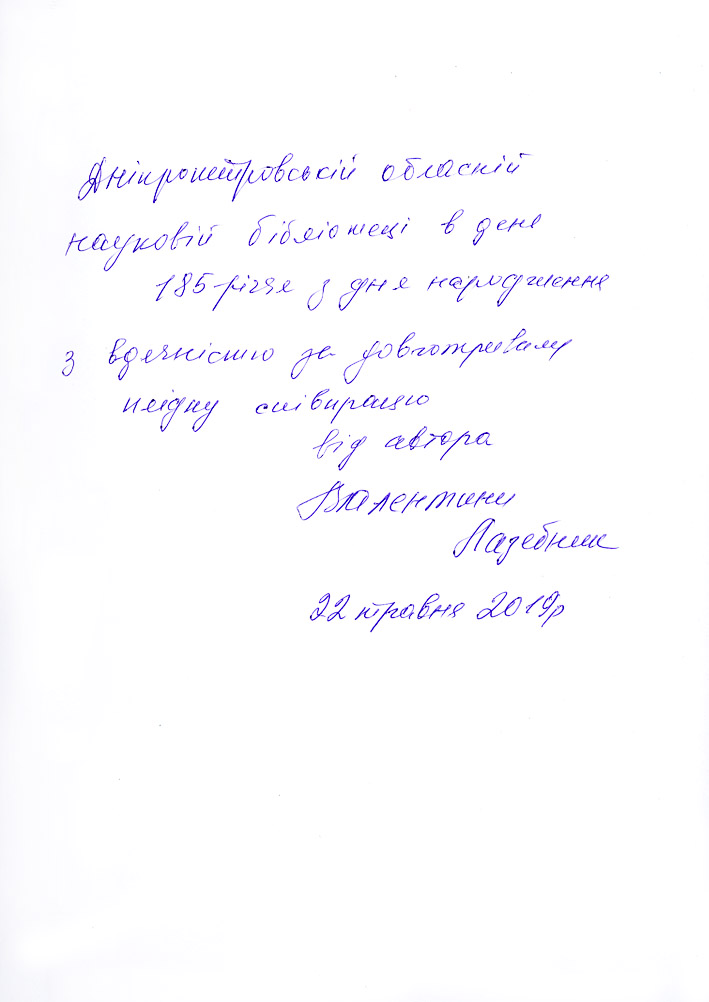 Дніпропетровській обласній
науковій бібліотеці в день
185-річчя з дня народження
з вдячністю за довготривалу
плідну співпрацю
від автора
Валентини
Лазебник
22 травня 2019р